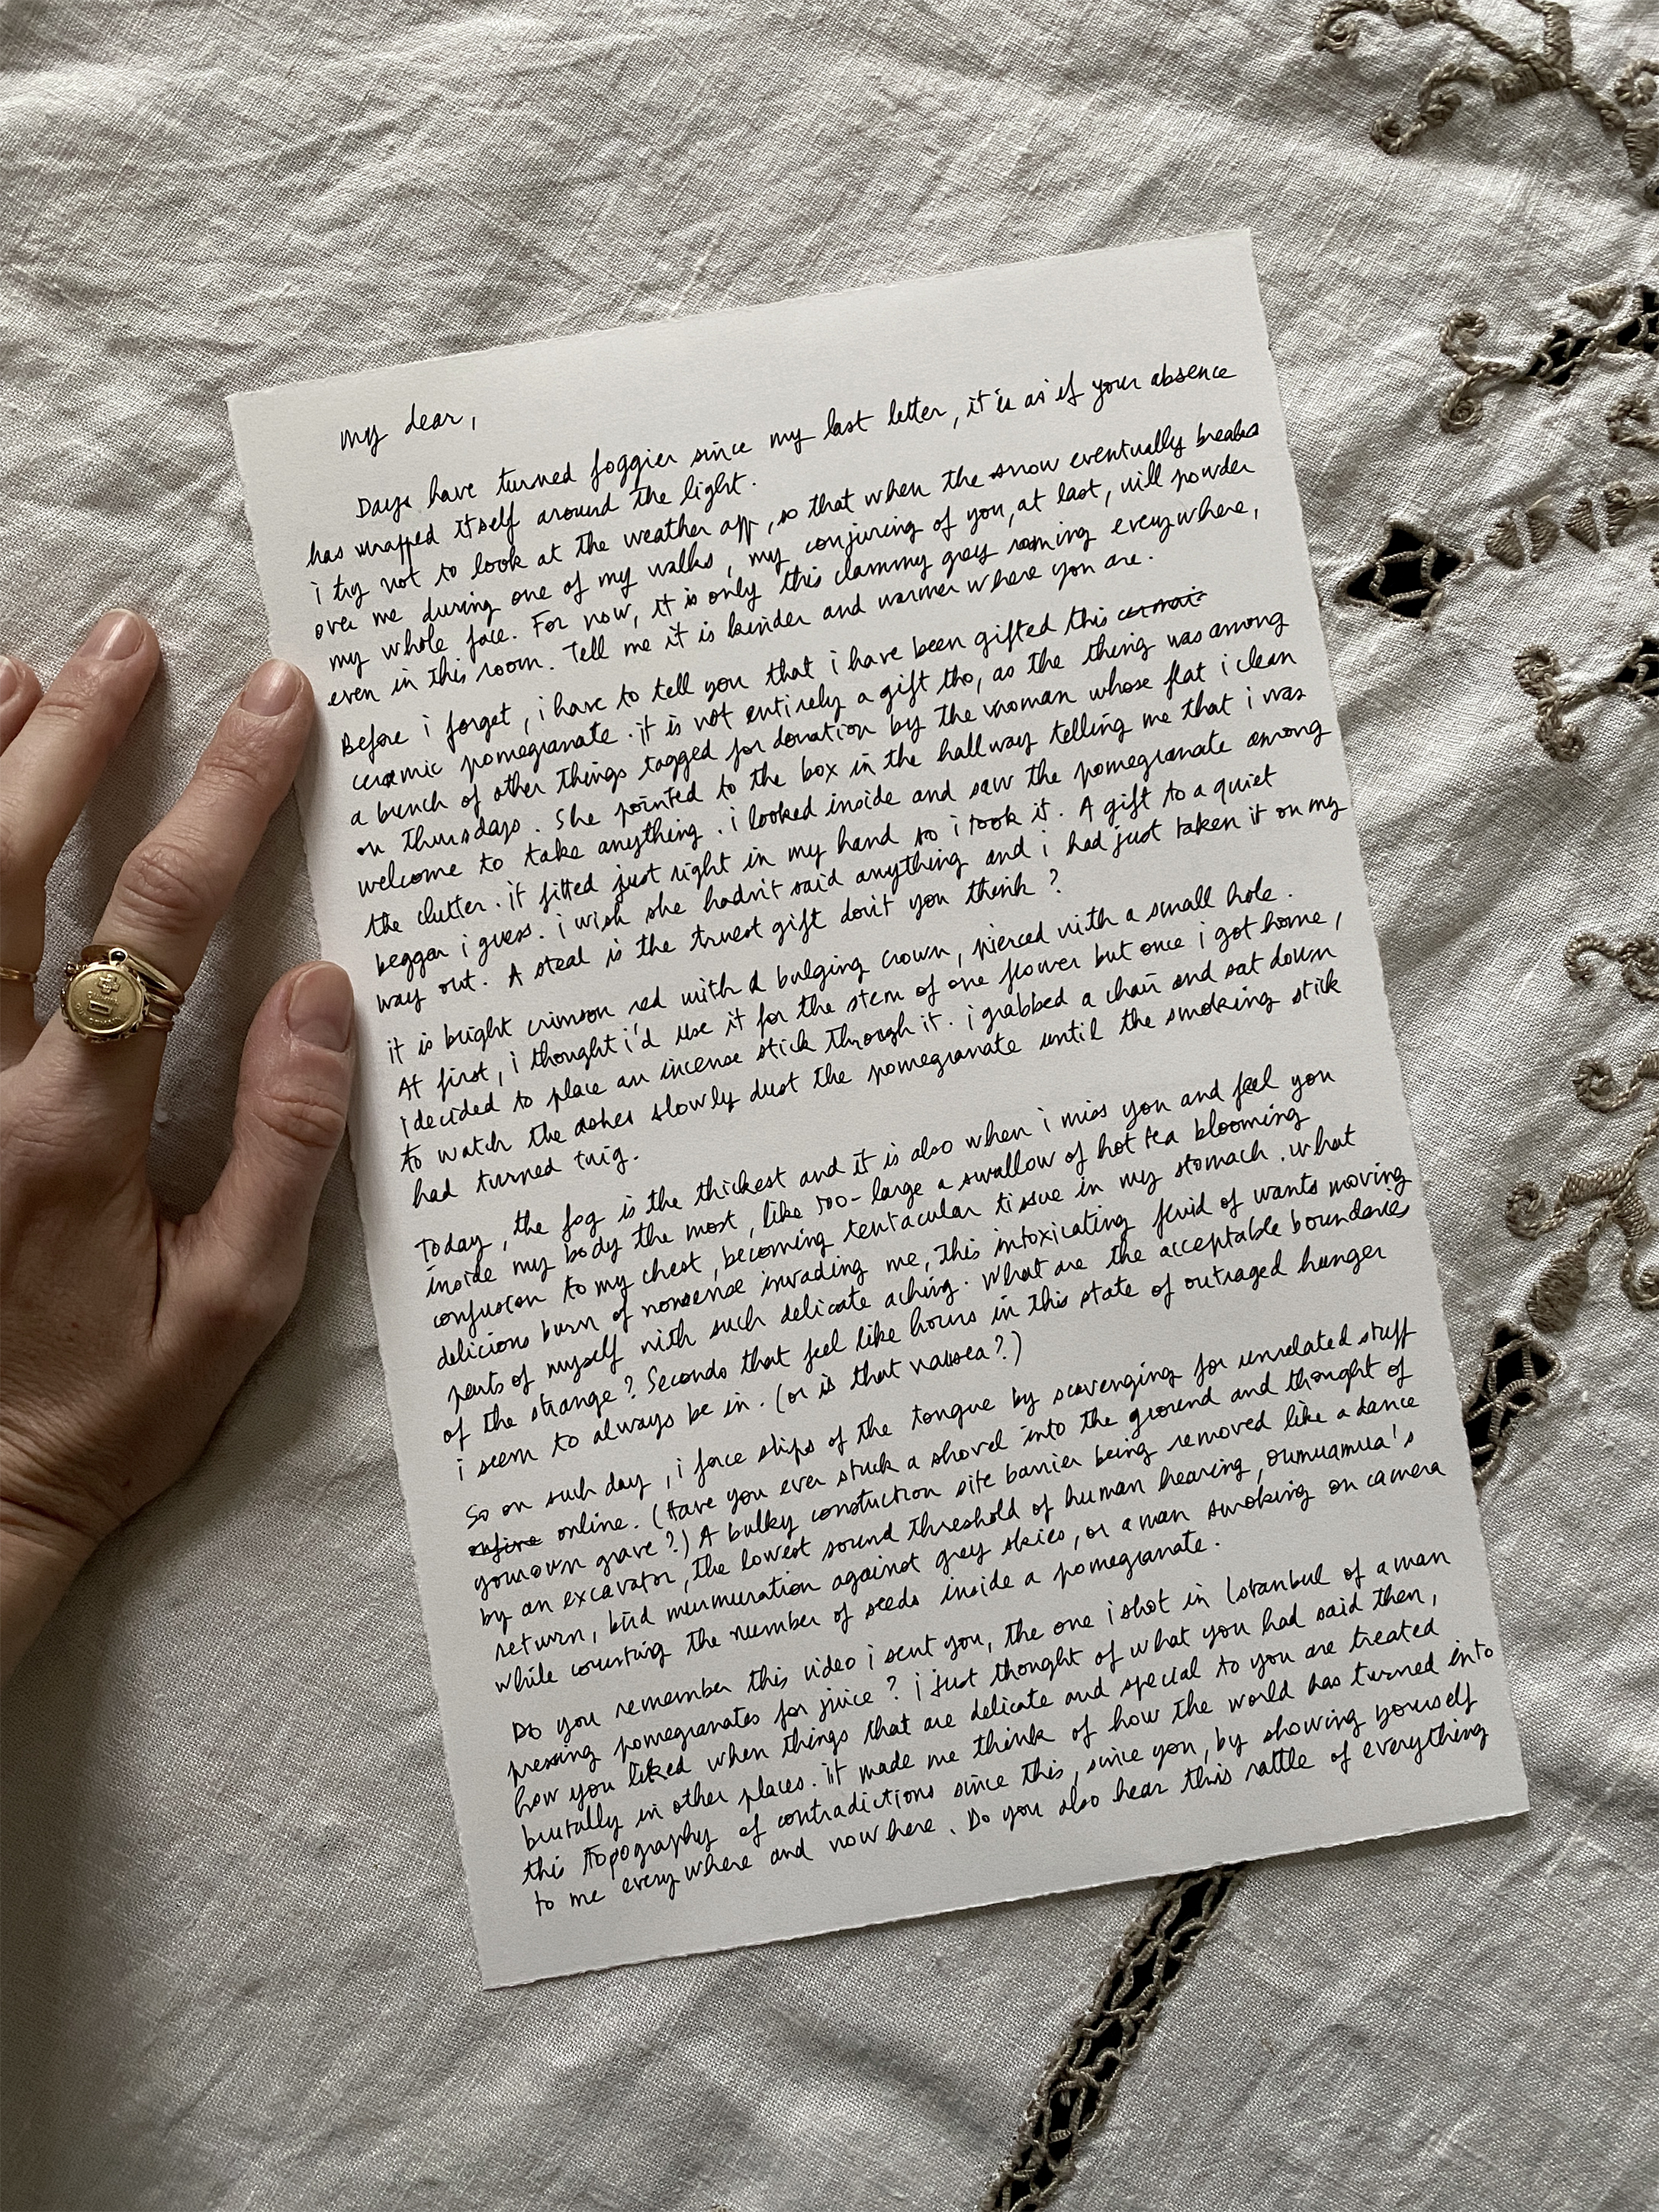 my dear,
Days have turned foggier since my last letter, it is as if your absence
has wrapped itself around the light.
i try not to look at the weather app, so that when the snow eventually breaks
over me during one of my walks, my conjuring of you, at last, will powder
my whole face. For now, it is only this clammy grey roaming everywhere,
even in this room. Tell me it is kinder and warmer where you are.
Before i forget, i have to tell you that i have been gifted this
ceramic pomegranate. it is not entirely a gift tho, as the thing was among
a bunch of other things tagged for donation by the woman whose flat i clean
on Thursdays. She pointed to the box in the hallway telling me that i was
welcome to take anything. i looked inside and saw the pomegranate among
the clutter. it fitted just right in my hand so i took it. A gift to a quiet
beggar i guess. i wish she hadn't said anything and i had just taken it on my
way out. A steal is the truest gift don't you think?
it is bright crimson red with a bulging crown, pierced with a small hole.
At first, i thought i'd use it for the stem of one flower but once i got home,
i decided to place an incense stick through it. i grabbed a chair and sat down
to watch the ashes slowly dust the pomegranate until the smoking stick
had turned twig.
Today, the fog is the thickest and it is also when i miss you and feel you
inside my body the most, like too-large a swallow of hot tea blooming
confusion to my chest, becoming tentacular tissue in my stomach. what
delicious burn of nonsense invading me, this intoxicating fluid of wants moving
parts of myself with such delicate aching. What are the acceptable boundaries
of the strange? Seconds that feel like hours in this state of outraged hunger
i seem to always be in. (or is that nausea?)
So on such day, i force slips of the tongue by scavenging for unrelated stuff
online. (Have you ever stuck a shovel into the ground and thought of
your own grave?) A bulky constuction site barrier being removed like a dance
by an excavator, the lowest sound threshold of human hearing, oumuamua's
return, bird murmuration against grey skies, or a man smoking on camera
while counting the number of seeds inside a pomegranate.
Do you remember this video i sent you, the one i shot in Istanbul of a man
pressing pomegranates for juice? i just thought of what you had said then,
how you liked when things that are delicate and special to you are treated
brutally in other places. it made me think of how the world has turned into
this topography of contradictions since this, since you, by showing yourself
to me everywhere and nowhere. Do you also hear this rattle of everything